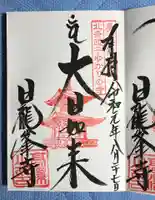 奉拝
令和元年八月二十七日
大日如来
日龍峯寺
日龍峯寺